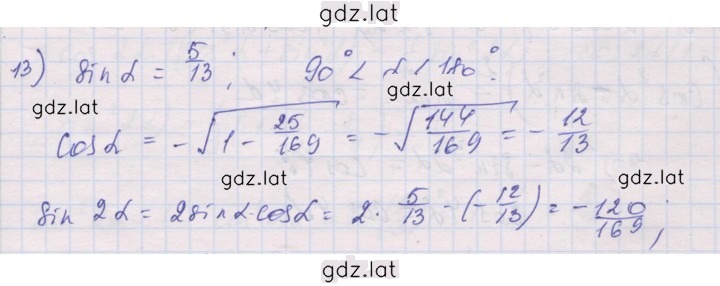 gdz.lat
13) sin α = 5/13; 90° < α < 180°.
gdz.lat
gdz.lat
cos α = -√(1 - 25/169) = -√(144/169) = -12/13
gdz.lat
gdz.lat
sin 2α = 2sinα·cosα = 2 · 5/13 - (-12/13) = -120/169;
gdz.lat